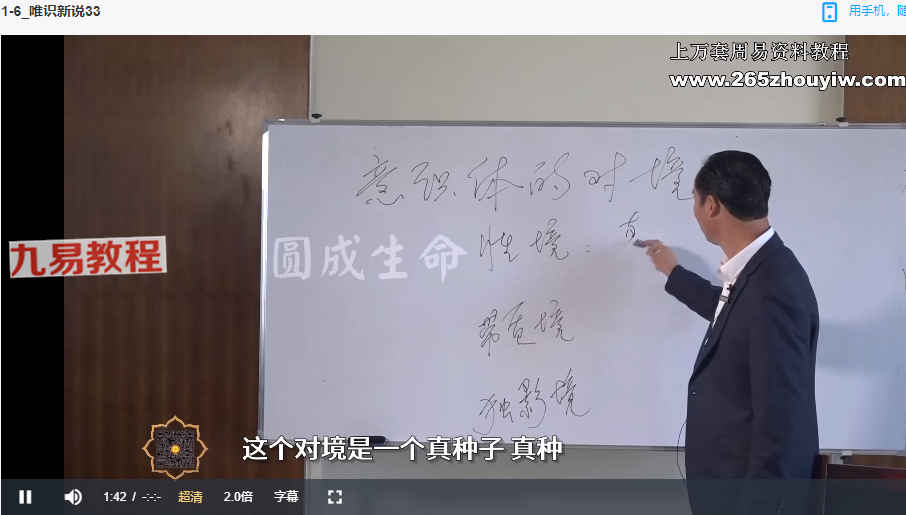 1-6_唯识新说33
用手机，随
上万套周易资料教程
www.265zhouyiw.com
意识体的对境
九易教程
圆成生命
性境：真
带质境
独影境
这个对境是一个真种子 真种
1:42 / -:-:- 超清 2.0倍 字幕